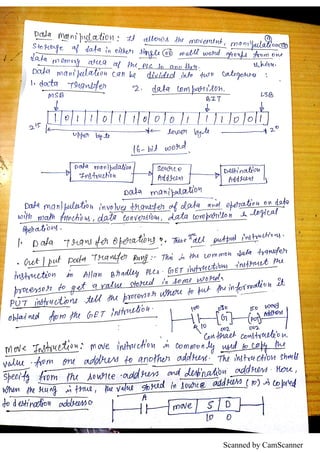 Data Manipulation: It allows the movement, manipulation
Storage of data in either single (or) multi word groups from one
data memory area of the PLC to another.
Data manipulation can be divided into two categories:
1. data Transfer 2. data comparison.
MSB BIT LSB
1 0 1 1 0 1 1 0 0 0 1 1 1 1 0 0 1
2^15 upper byte lower byte 2^0
16-bit word
Data manipulation Instruction Source Address Destination Address
Data manipulation
Data manipulation involves transfer of data and operation on data
with math functions, data conversion, data comparison & logical
operations.
1. Data Transfer Operations: all output instructions.
• Get/put Data Transfer Rung: This is the common data transfer
instruction in Allan Bradley PLC. GET instructions instruct the
processor to get a value stored in some word.
PUT instructions tell the processor where to put the information it
obtained from the GET instruction.
100 030 50 word Address
G
10 002 002
Contract construction
Move Instruction: move instruction is commonly used to copy the
value from one address to another address. The instruction should
specify from the source address and destination address. Here,
when the rung is true, the value stored in source address (10) is copied
to destination address
A
move S D
10 0
Scanned by CamScanner